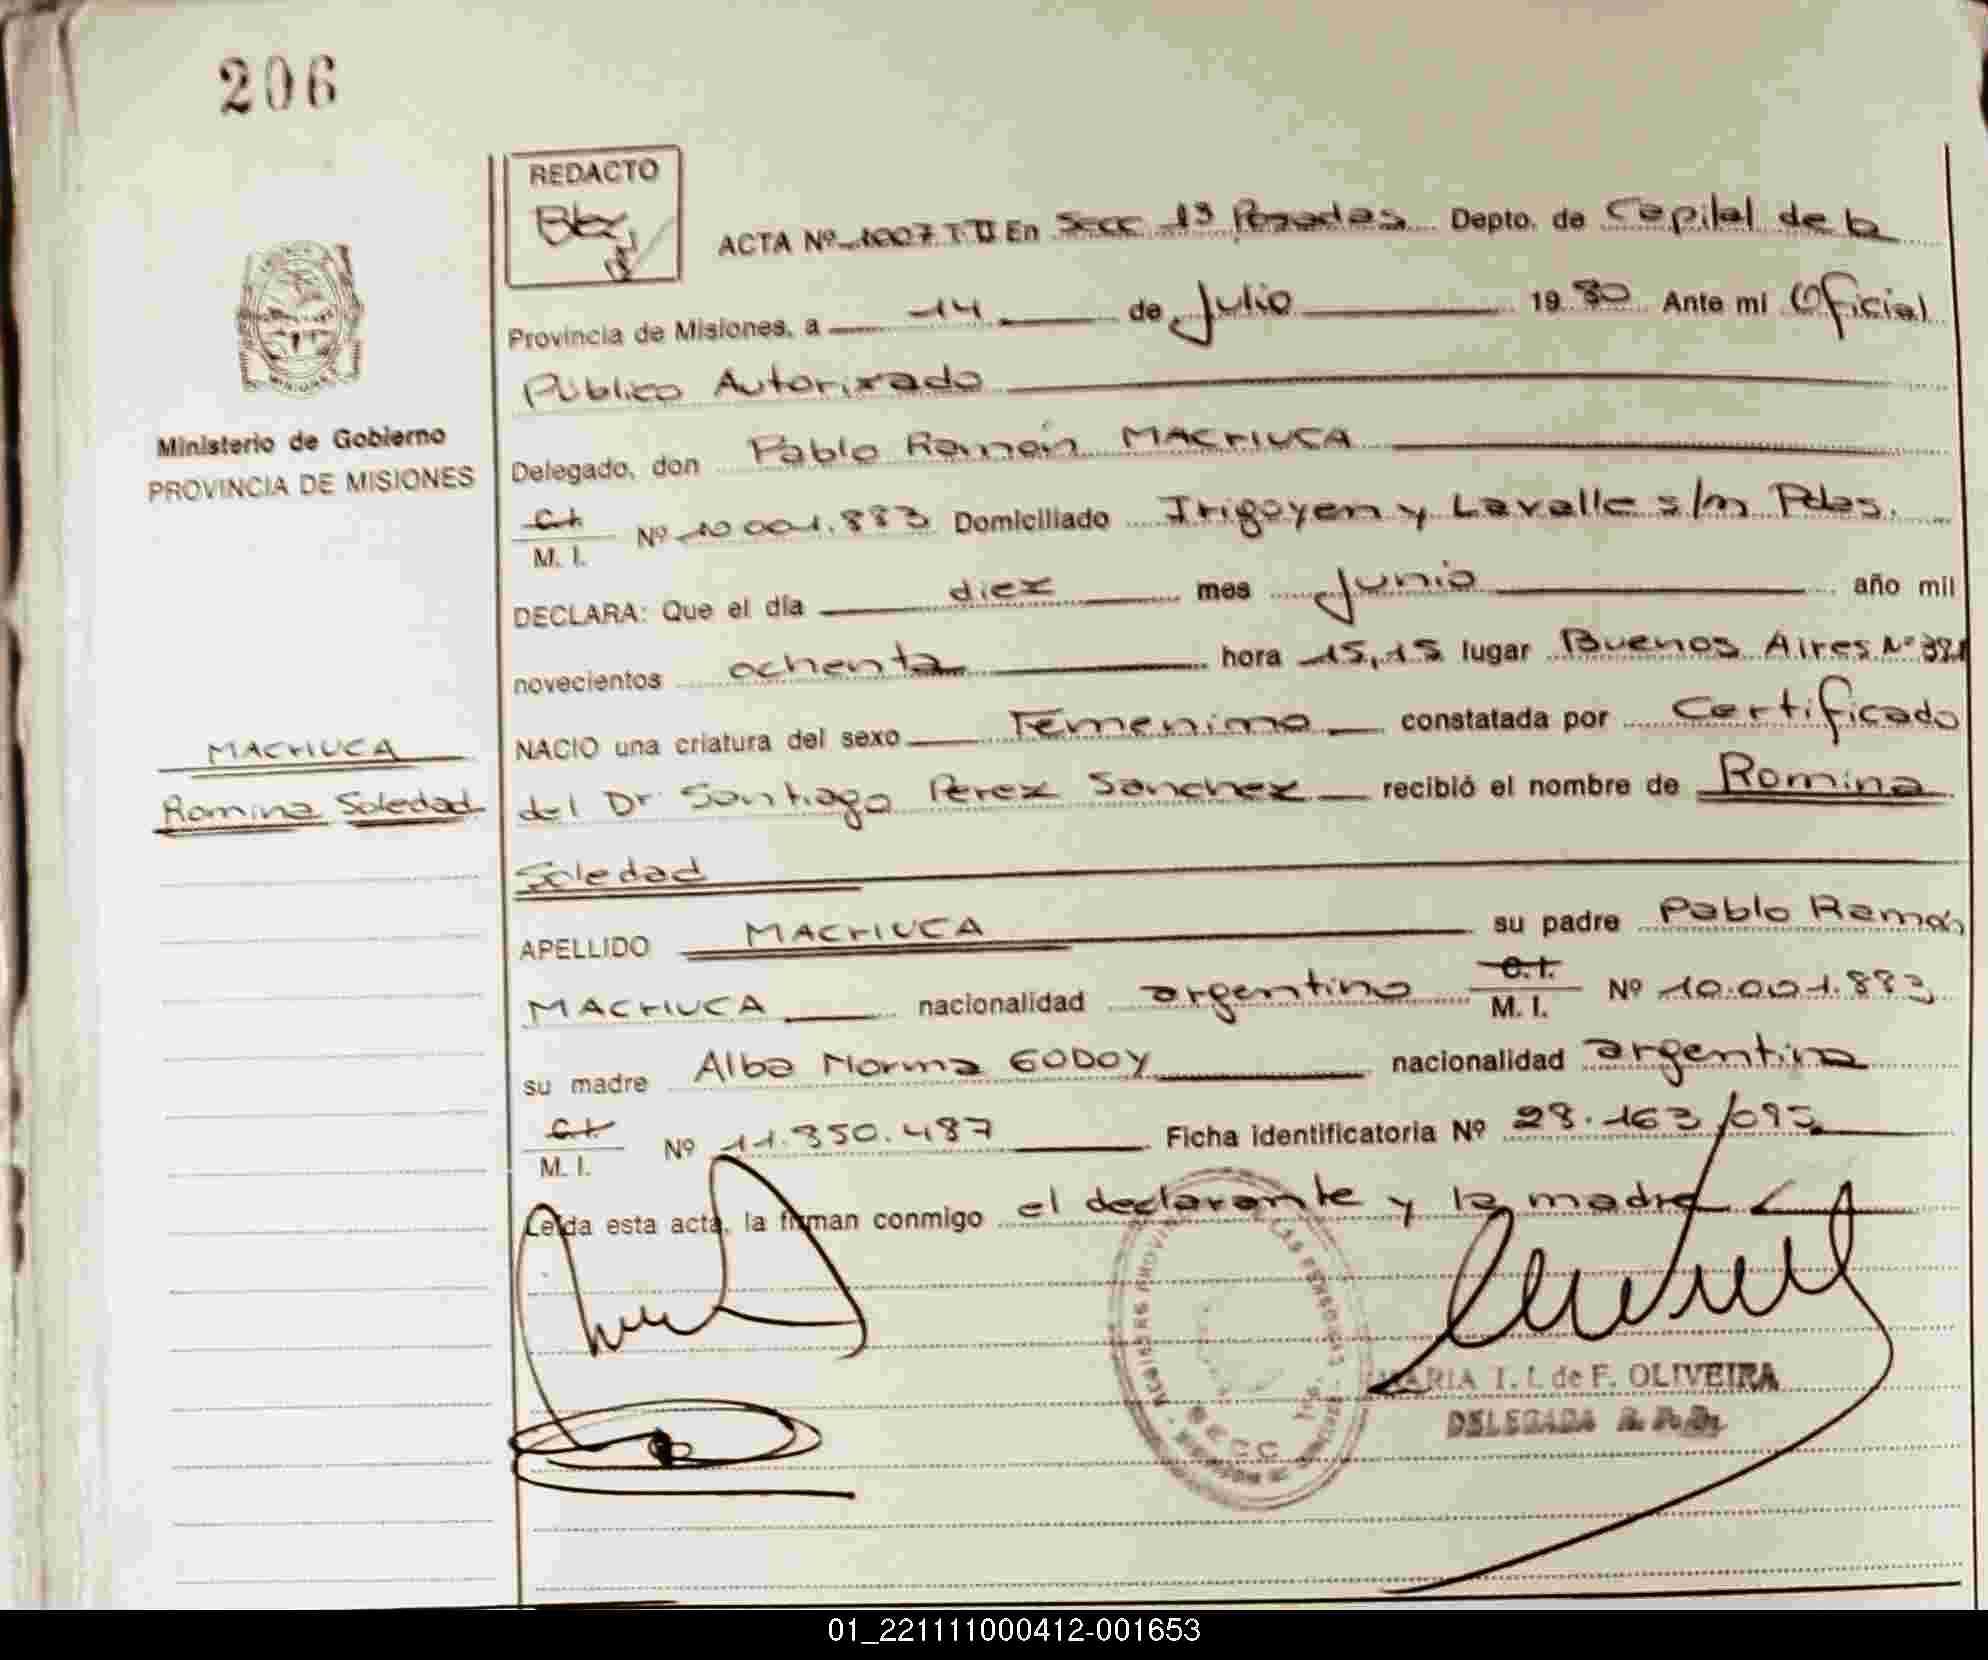 206
REDACTO
ACTA Nº 1007 T II En Secc 1ª Posadas Depto. de Capital de la
Provincia de Misiones, a 14 de Julio 1980 Ante mi Oficial
Público Autorizado
Ministerio de Gobierno
PROVINCIA DE MISIONES
Delegado, don Pablo Ramón MACHUCA
C.I.
M. I. Nº 10.001.883 Domiciliado Irigoyen y Lavalle s/n Pdas.
DECLARA: Que el día diez mes Junio año mil
novecientos ochenta hora 15,15 lugar Buenos Aires Nº
MACHUCA
Romina Soledad
NACIO una criatura del sexo Femenino constatada por Certificado
del Dr Santiago Perez Sanchez recibió el nombre de Romina
Soledad
APELLIDO MACHUCA su padre Pablo Ramón
MACHUCA nacionalidad argentino C.I.
M. I. Nº 10.001.883
su madre Alba Norma GODOY nacionalidad argentina
C.I.
M. I. Nº 11.850.487 Ficha identificatoria Nº 28.163/095
Leída esta acta, la firman conmigo el declarante y la madre
MARIA I. I. de F. OLIVEIRA
DELEGADA
01_221111000412-001653